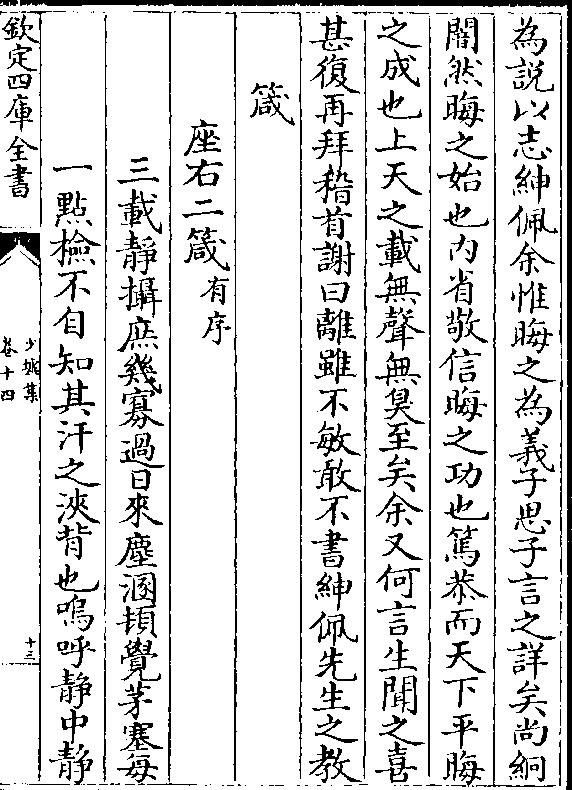 為說以志紳佩余惟晦之為義子思子言之詳矣尚絅
闇然晦之始也内省敬信晦之功也篤恭而天下平晦
之成也上天之載無聲無臭至矣余又何言生聞之喜
甚復再拜稽首謝曰離雖不敏敢不書紳佩先生之教
箴
座右二箴有序
三載靜攝庶幾寡過日來塵溷頓覺茅塞每
一點檢不自知其汗之浹背也嗚呼静中静
欽定四庫全書
少墟集
卷十四
十三